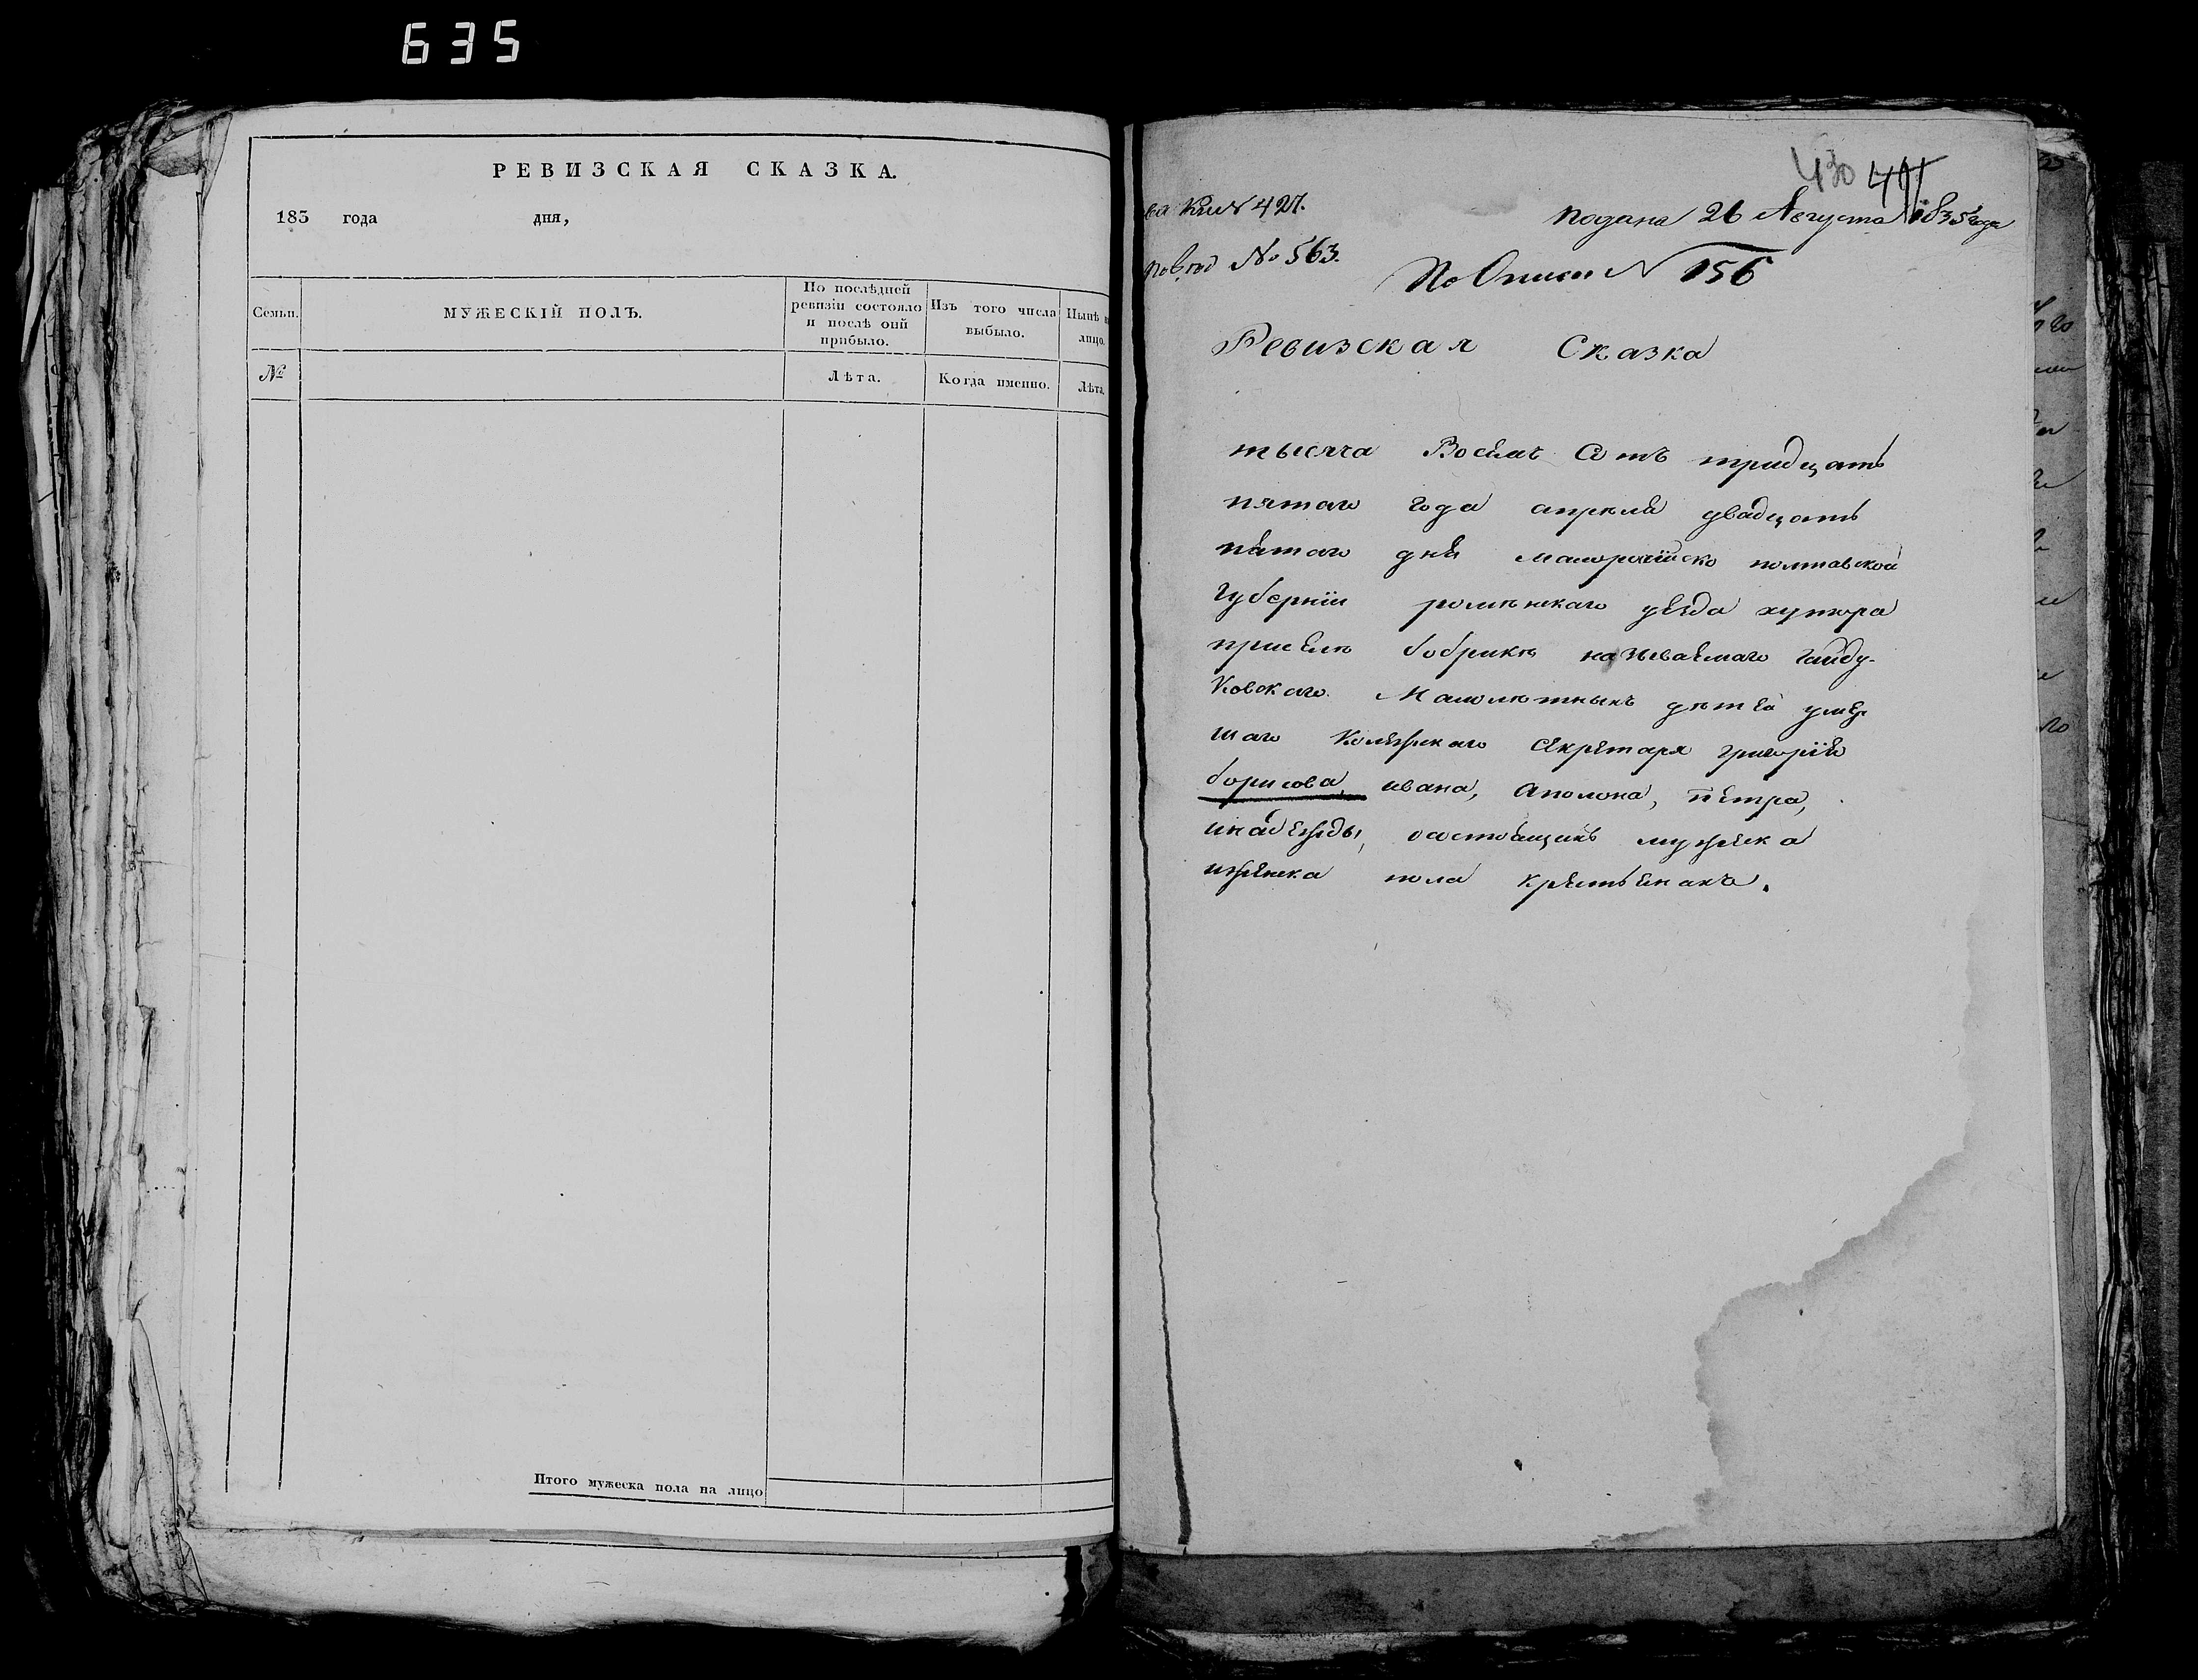 635
РЕВИЗСКАЯ СКАЗКА.
183 года дня,
Семьи.
МУЖЕСКІЙ ПОЛЪ.
По послѣдней
ревизіи состояло
и послѣ оий
прибыло.
Изъ того числа
выбыло.
Нынѣ
лицо.
№
Лѣта.
Когда именно.
Лѣта.
Итого мужеска пола на лицо
430
№ 427.
подана 26 Августа 1835 года
№ 563.
По Описи N 156
Ревизская Сказка
тысяча Восемъ Сотъ тридцать
пятаго года апреля двадцать
пятаго дня малоросійско полтавской
Губерніи роменскаго уезда хутора
приселе бобрике называемаго гайду-
ковскаго Малолетныхъ детей умер
шаго Колежскаго Секретаря григорія
борисова, ивана, Аполона, петра,
инадежды, осостоящихъ мужеска
иженска пола крестьянахъ.